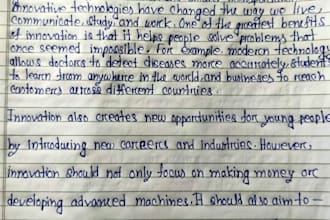 Innovative technologies have changed the way we live,
communicate, study and work. One of the greatest benefits
of innovation is that it helps people solve problems that
once seemed impossible. For example, modern technology
allows doctors to detect diseases more accurately, students
to learn from anywhere in the world and businesses to reach
customers across different countries.
Innovation also creates new opportunities for young people
by introducing new careers and industries. However,
innovation should not only focus on making money or
developing advanced machines. It should also aim to-